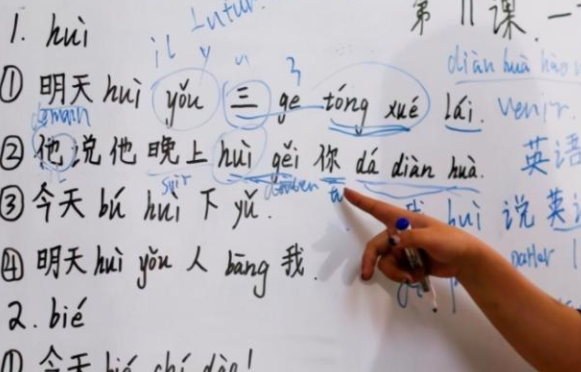 第 11 课. 一
1. huì
futur.
il y
diàn huà hào
① 明天 huì yǒu 三 ge tóng xué lái. venir.
demain
② 他说他晚上 huì gěi 你 dá diàn huà. 英语
soir
tu
③ 今天 bú huì 下 yǔ. huì 说英语
④ 明天 huì yǒu 人 bāng 我. parler
2. bié
① 今天 bié chí dào!